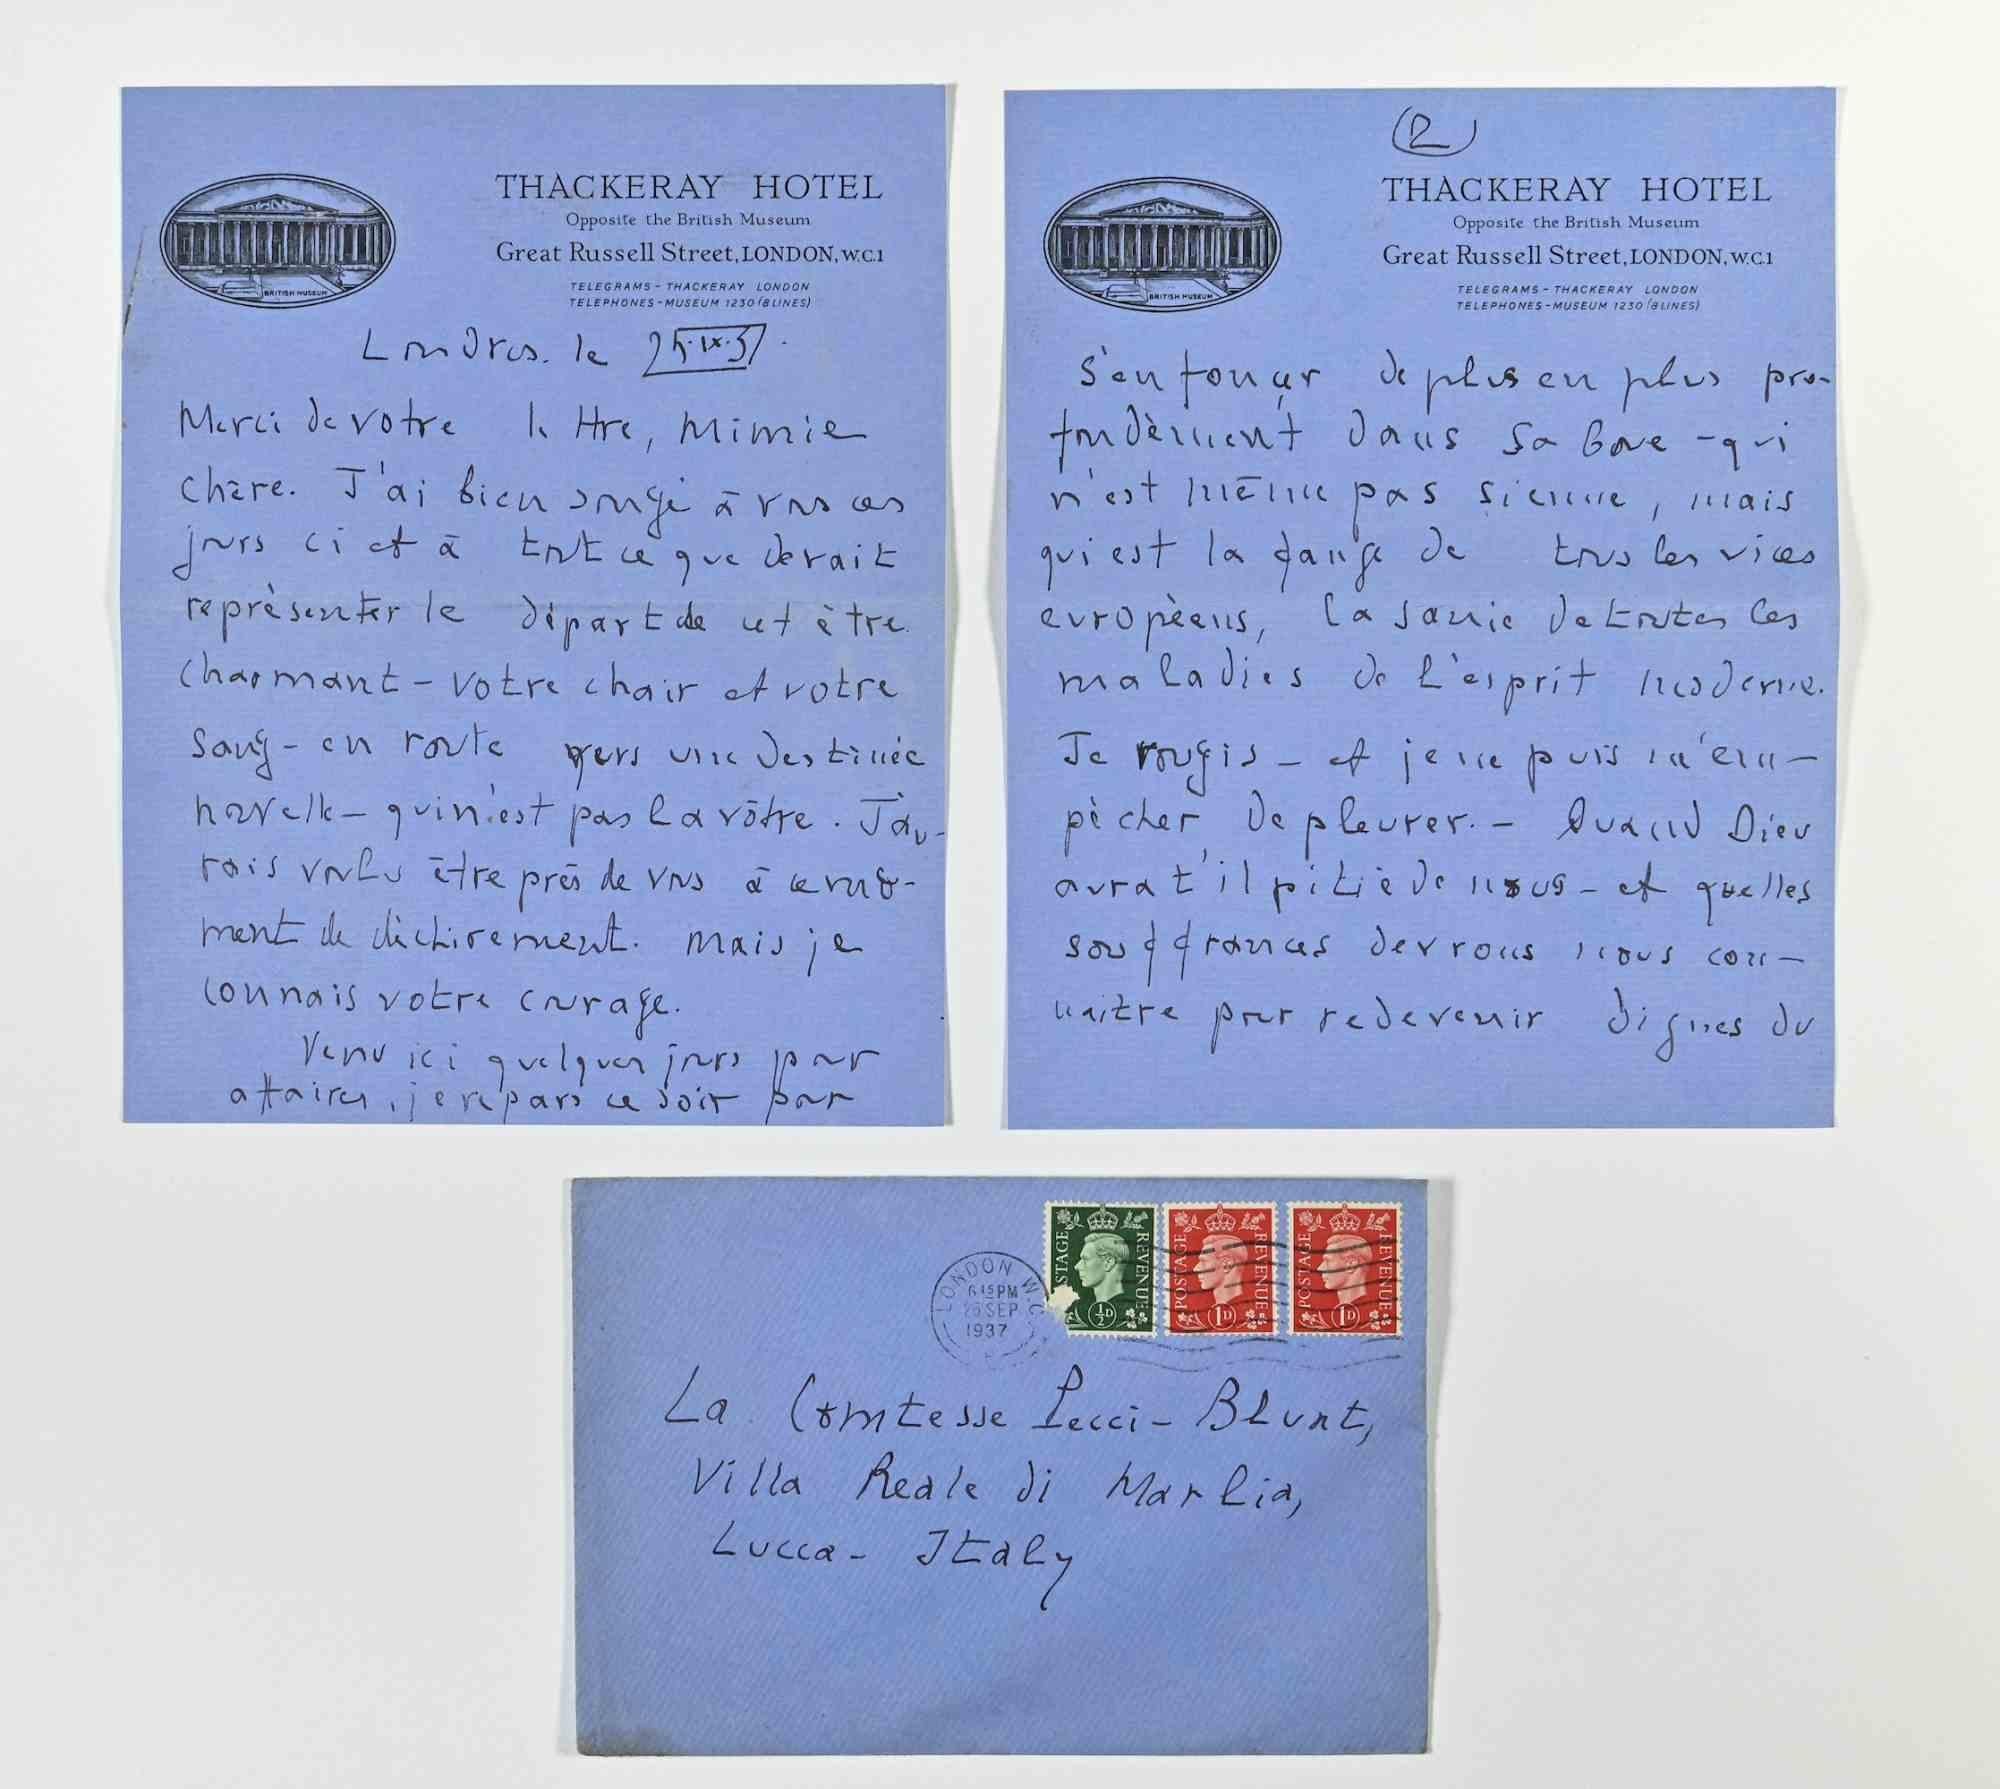 BRITISH MUSEUM
THACKERAY HOTEL
Opposite the British Museum
Great Russell Street, LONDON, W.C.1
TELEGRAMS - THACKERAY LONDON
TELEPHONES - MUSEUM 1230 (8 LINES)
Londres. le 25.IX.37.
Merci de votre lettre, Mimie
chère. J'ai bien songé à vous ces
jours ci et à tout ce que devait
représenter le départ de cet être
charmant - votre chair et votre
sang - en route vers une destinée
nouvelle - qui n'est pas la vôtre. J'au-
rais voulu être près de vous à ce mo-
ment de déchirement. Mais je
connais votre courage.
Venu ici quelques jours pour
affaires, je repars ce soir pour
(2)
BRITISH MUSEUM
THACKERAY HOTEL
Opposite the British Museum
Great Russell Street, LONDON, W.C.1
TELEGRAMS - THACKERAY LONDON
TELEPHONES - MUSEUM 1230 (8 LINES)
s'enfonçer de plus en plus pro-
fondèment dans sa boue - qui
n'est même pas sienne, mais
qui est la fange de tous les vices
européens, la sanie de toutes les
maladies de l'esprit moderne.
Je rougis - et je ne puis m'em-
pêcher de pleurer. - Quand Dieu
aura t'il pitié de nous - et quelles
souffrances devrons nous con-
naitre pour redevenir dignes du
LONDON W.C.
6 15 PM
26 SEP
1937
POSTAGE REVENUE
½D
POSTAGE REVENUE
1D
POSTAGE REVENUE
1D
La Comtesse Pecci-Blunt,
Villa Reale di Marlia,
Lucca - Italy